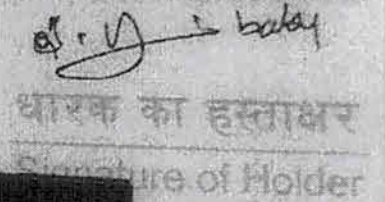 baby
धारक का हस्ताक्षर
Signature of Holder